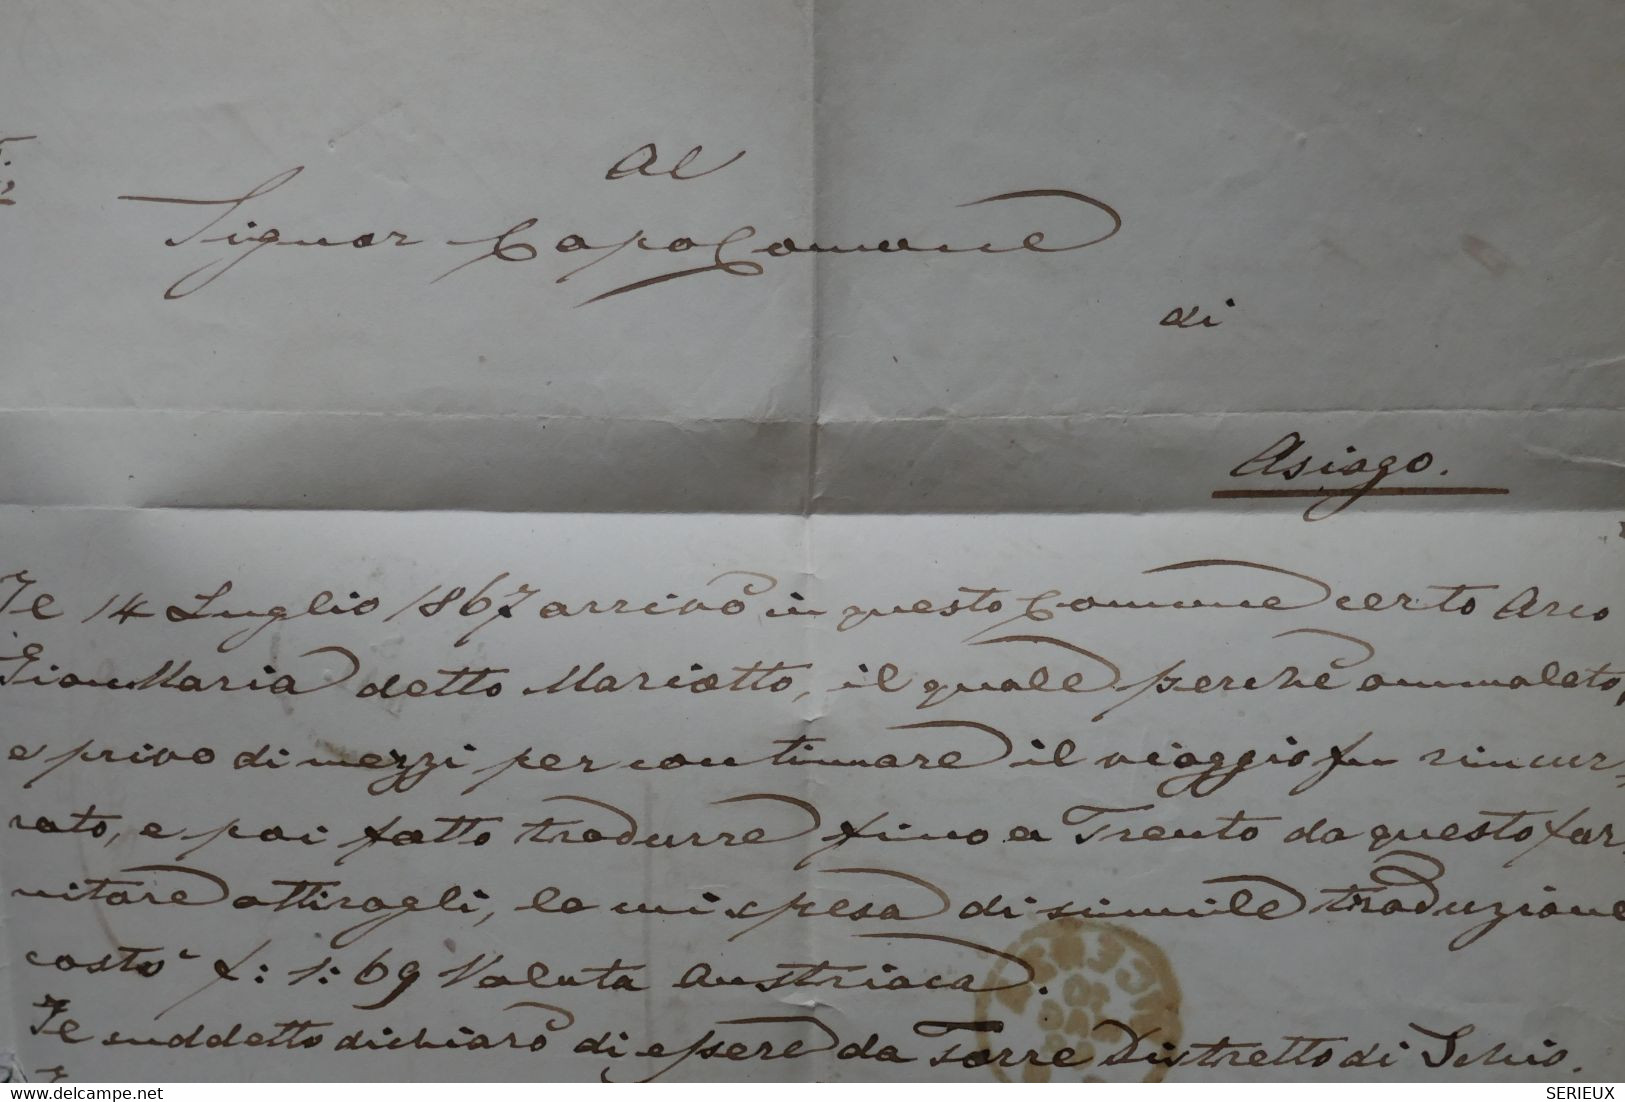 Al
Signor Capo Comune
di
Asiago.
Il 14 Luglio 1867 arrivò in questo Comune certo Arco
Gian Maria detto Mariotto, il quale perchè ammalato,
e privo di mezzi per continuare il viaggio fu rincur-
rato, e poi fatto tradurre fino a Trento da questo far-
nitare Attiragli, la cui spesa di simile traduzione
costò f: 1:69 Valuta Austriaca.
Il suddetto dichiarò di essere da Torre Distretto di Schio.
delcampe.net
SERIEUX